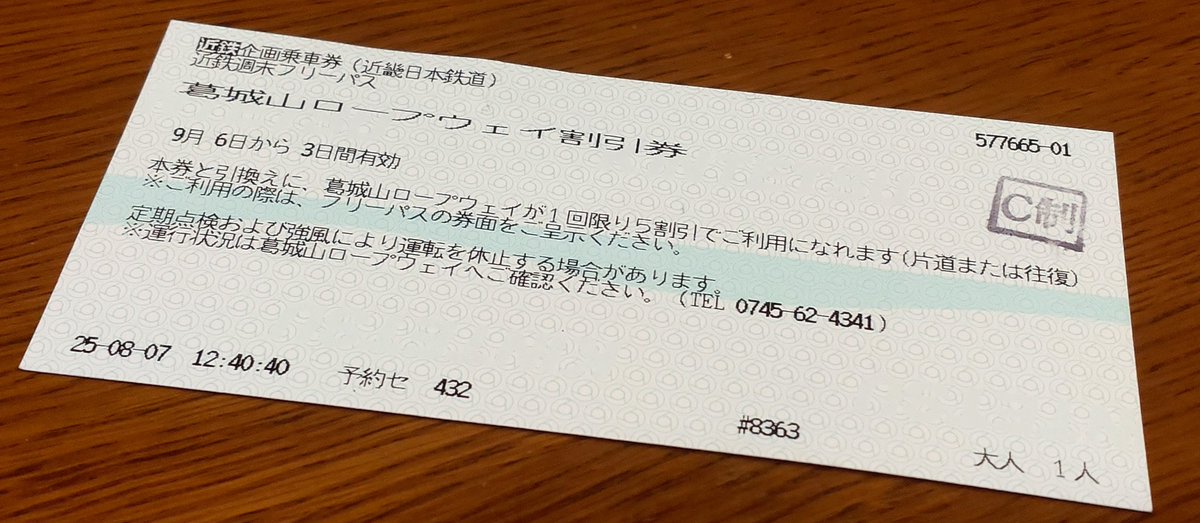 近鉄企画乗車券(近畿日本鉄道)
近鉄週末フリーパス
葛城山ロープウェイ割引券
577665-01
9月 6日から 3日間有効
C制
本券と引換えに、葛城山ロープウェイが1回限り5割引でご利用になれます(片道または往復)
※ご利用の際は、フリーパスの券面をご呈示ください。
定期点検および強風により運転を休止する場合があります。
※運行状況は葛城山ロープウェイへご確認ください。(TEL 0745-62-4341)
25-08-07 12:40:40 予約セ 432
#8363
大人 1人